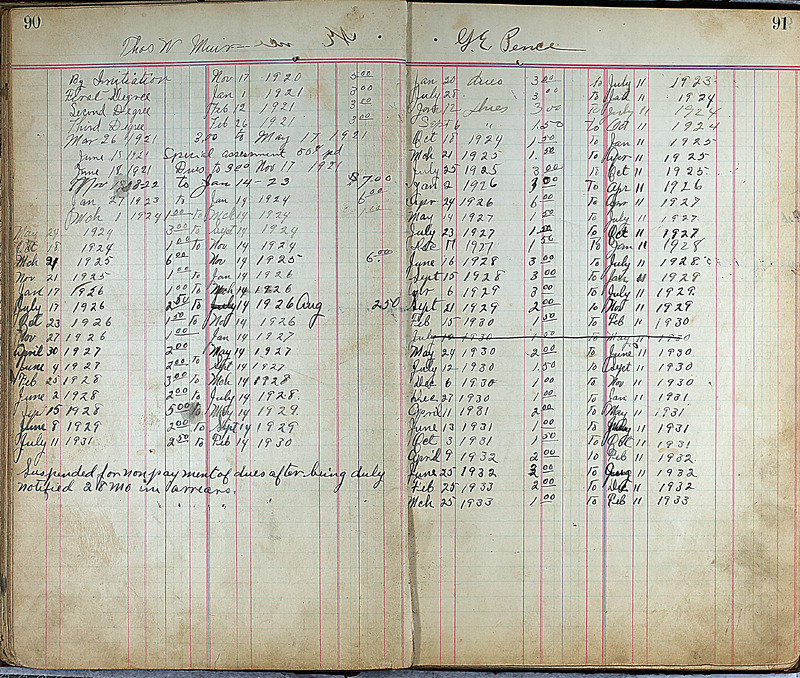 90
Thos W Muir
By Initiation Nov 17 1920 5.00
First Degree Jan 1 1921 3.00
Second Degree Feb 12 1921 3.00
Third Degree Feb 26 1921 3.00
Mar 26 1921 3.00 to May 17 1921
June 18 1921 Special assessment 50¢ pd
June 18 1921 Dues to Nov 17 1921
Nov 1822 to Jan 14-23 $7.00
Jan 27 1923 to Jan 14 1924 6.00
Mch 1 1924 1.00 to Mch 14 1924 1.00
May 24 1924 3.00 to Sept 14 1924
Oct 18 1924 1.00 to Nov 14 1924
Mch 21 1925 6.00 to Nov 14 1925 6.00
Nov 21 1925 1.00 to Jan 14 1926
Jan 17 1926 1.00 to Mch 14 1926
July 17 1926 2.50 to July 14 1926 Aug 2.50
Oct 23 1926 1.50 to Nov 14 1926
Nov 27 1926 1.00 Jan 14 1927
April 30 1927 2.00 to May 14 1927
June 4 1927 2.00 to Sept 14 1927
Feb 25 1928 3.00 to Mch 14 1928
June 2 1928 2.00 to July 14 1928
15 1928 5.00 to May 14 1929
June 8 1929 2.00 to Sept 14 1929
July 11 1931 2.50 to Feb 14 1930
Suspended for non payment of dues after being duly
notified 28 Mo in arrears.
91
G E Pence
Jan 20 Dues 3.00 to July 11 1923
July 28 3.00 to Jan 11 1924
Jan 12 Dues 3.00 to July 11 1924
Sept 6 " 1.50 to Oct 11 1924
Oct 18 1924 1.50 to Jan 11 1925
Mch 21 1925 1.50 to Apr 11 1925
July 25 1925 3.00 to Oct 11 1925
Jan 2 1926 3.00 to Apr 11 1926
Apr 24 1926 6.00 to Apr 11 1927
May 14 1927 1.50 to July 11 1927
July 23 1927 1.50 to Oct 11 1927
Dec 17 1927 1.50 to Jan 11 1928
June 16 1928 3.00 to July 11 1928
Sept 15 1928 3.00 to Jan 11 1929
6 1929 3.00 to July 11 1929
Sept 21 1929 2.00 to Nov 11 1929
Feb 15 1930 1.50 to Feb 11 1930
July 1.50 to May 11 1930
May 24 1930 2.00 to June 11 1930
July 12 1930 1.50 to Sept 11 1930
Dec 6 1930 1.00 to Nov 11 1930
Dec 27 1930 1.00 to Jan 11 1931
April 11 1931 2.00 to May 11 1931
June 13 1931 1.00 to July 11 1931
Oct 3 1931 1.50 to Oct 11 1931
April 9 1932 2.00 to Feb 11 1932
June 25 1932 2.00 to 11 1932
Feb 25 1933 2.00 to Dec 11 1932
Mch 25 1933 1.00 to Feb 11 1933